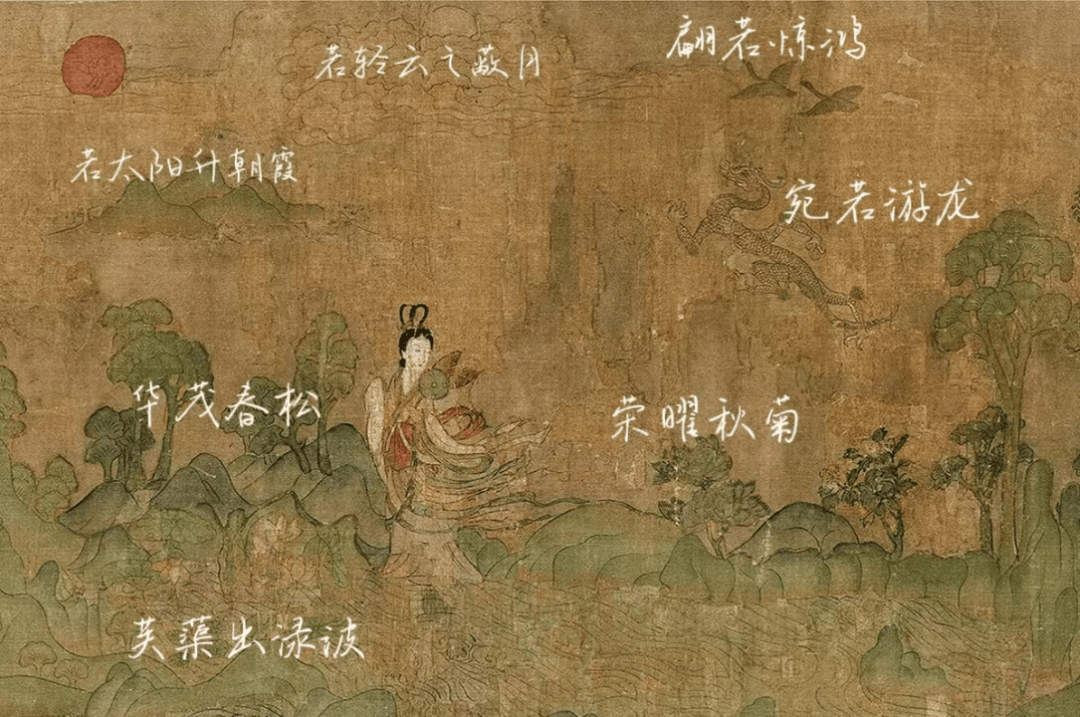 翩若惊鸿
若轻云之蔽月
若太阳升朝霞
宛若游龙
华茂春松
荣曜秋菊
芙蕖出渌波